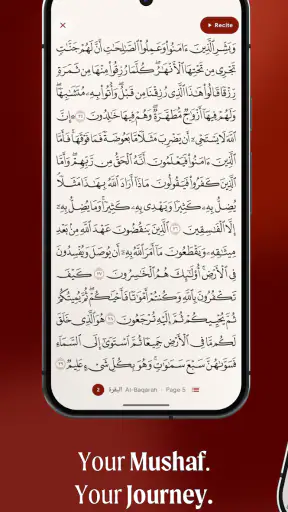 Recite
وَبَشِّرِ ٱلَّذِينَ ءَامَنُوا۟ وَعَمِلُوا۟ ٱلصَّـٰلِحَـٰتِ أَنَّ لَهُمْ جَنَّـٰتٍ
تَجْرِى مِن تَحْتِهَا ٱلْأَنْهَـٰرُ ۖ كُلَّمَا رُزِقُوا۟ مِنْهَا مِن ثَمَرَةٍ
رِّزْقًا ۙ قَالُوا۟ هَـٰذَا ٱلَّذِى رُزِقْنَا مِن قَبْلُ ۖ وَأُتُوا۟ بِهِۦ مُتَشَـٰبِهًا ۖ
وَلَهُمْ فِيهَآ أَزْوَٰجٌ مُّطَهَّرَةٌ ۖ وَهُمْ فِيهَا خَـٰلِدُونَ ٢٥ ۞ إِنَّ
ٱللَّهَ لَا يَسْتَحْىِۦٓ أَن يَضْرِبَ مَثَلًا مَّا بَعُوضَةً فَمَا فَوْقَهَا ۚ فَأَمَّا
ٱلَّذِينَ ءَامَنُوا۟ فَيَعْلَمُونَ أَنَّهُ ٱلْحَقُّ مِن رَّبِّهِمْ ۖ وَأَمَّا
ٱلَّذِينَ كَفَرُوا۟ فَيَقُولُونَ مَاذَآ أَرَادَ ٱللَّهُ بِهَـٰذَا مَثَلًا ۘ
يُضِلُّ بِهِۦ كَثِيرًا وَيَهْدِى بِهِۦ كَثِيرًا ۚ وَمَا يُضِلُّ بِهِۦٓ
إِلَّا ٱلْفَـٰسِقِينَ ٢٦ ٱلَّذِينَ يَنقُضُونَ عَهْدَ ٱللَّهِ مِنۢ بَعْدِ
مِيثَـٰقِهِۦ وَيَقْطَعُونَ مَآ أَمَرَ ٱللَّهُ بِهِۦٓ أَن يُوصَلَ وَيُفْسِدُونَ
فِى ٱلْأَرْضِ ۚ أُو۟لَـٰٓئِكَ هُمُ ٱلْخَـٰسِرُونَ ٢٧ كَيْفَ
تَكْفُرُونَ بِٱللَّهِ وَكُنتُمْ أَمْوَٰتًا فَأَحْيَـٰكُمْ ۖ ثُمَّ يُمِيتُكُمْ
ثُمَّ يُحْيِيكُمْ ثُمَّ إِلَيْهِ تُرْجَعُونَ ٢٨ هُوَ ٱلَّذِى خَلَقَ
لَكُم مَّا فِى ٱلْأَرْضِ جَمِيعًا ثُمَّ ٱسْتَوَىٰٓ إِلَى ٱلسَّمَآءِ
فَسَوَّىٰهُنَّ سَبْعَ سَمَـٰوَٰتٍ ۚ وَهُوَ بِكُلِّ شَىْءٍ عَلِيمٌ ٢٩
2 البقرة Al-Baqarah · Page 5
Your Mushaf.
Your Journey.